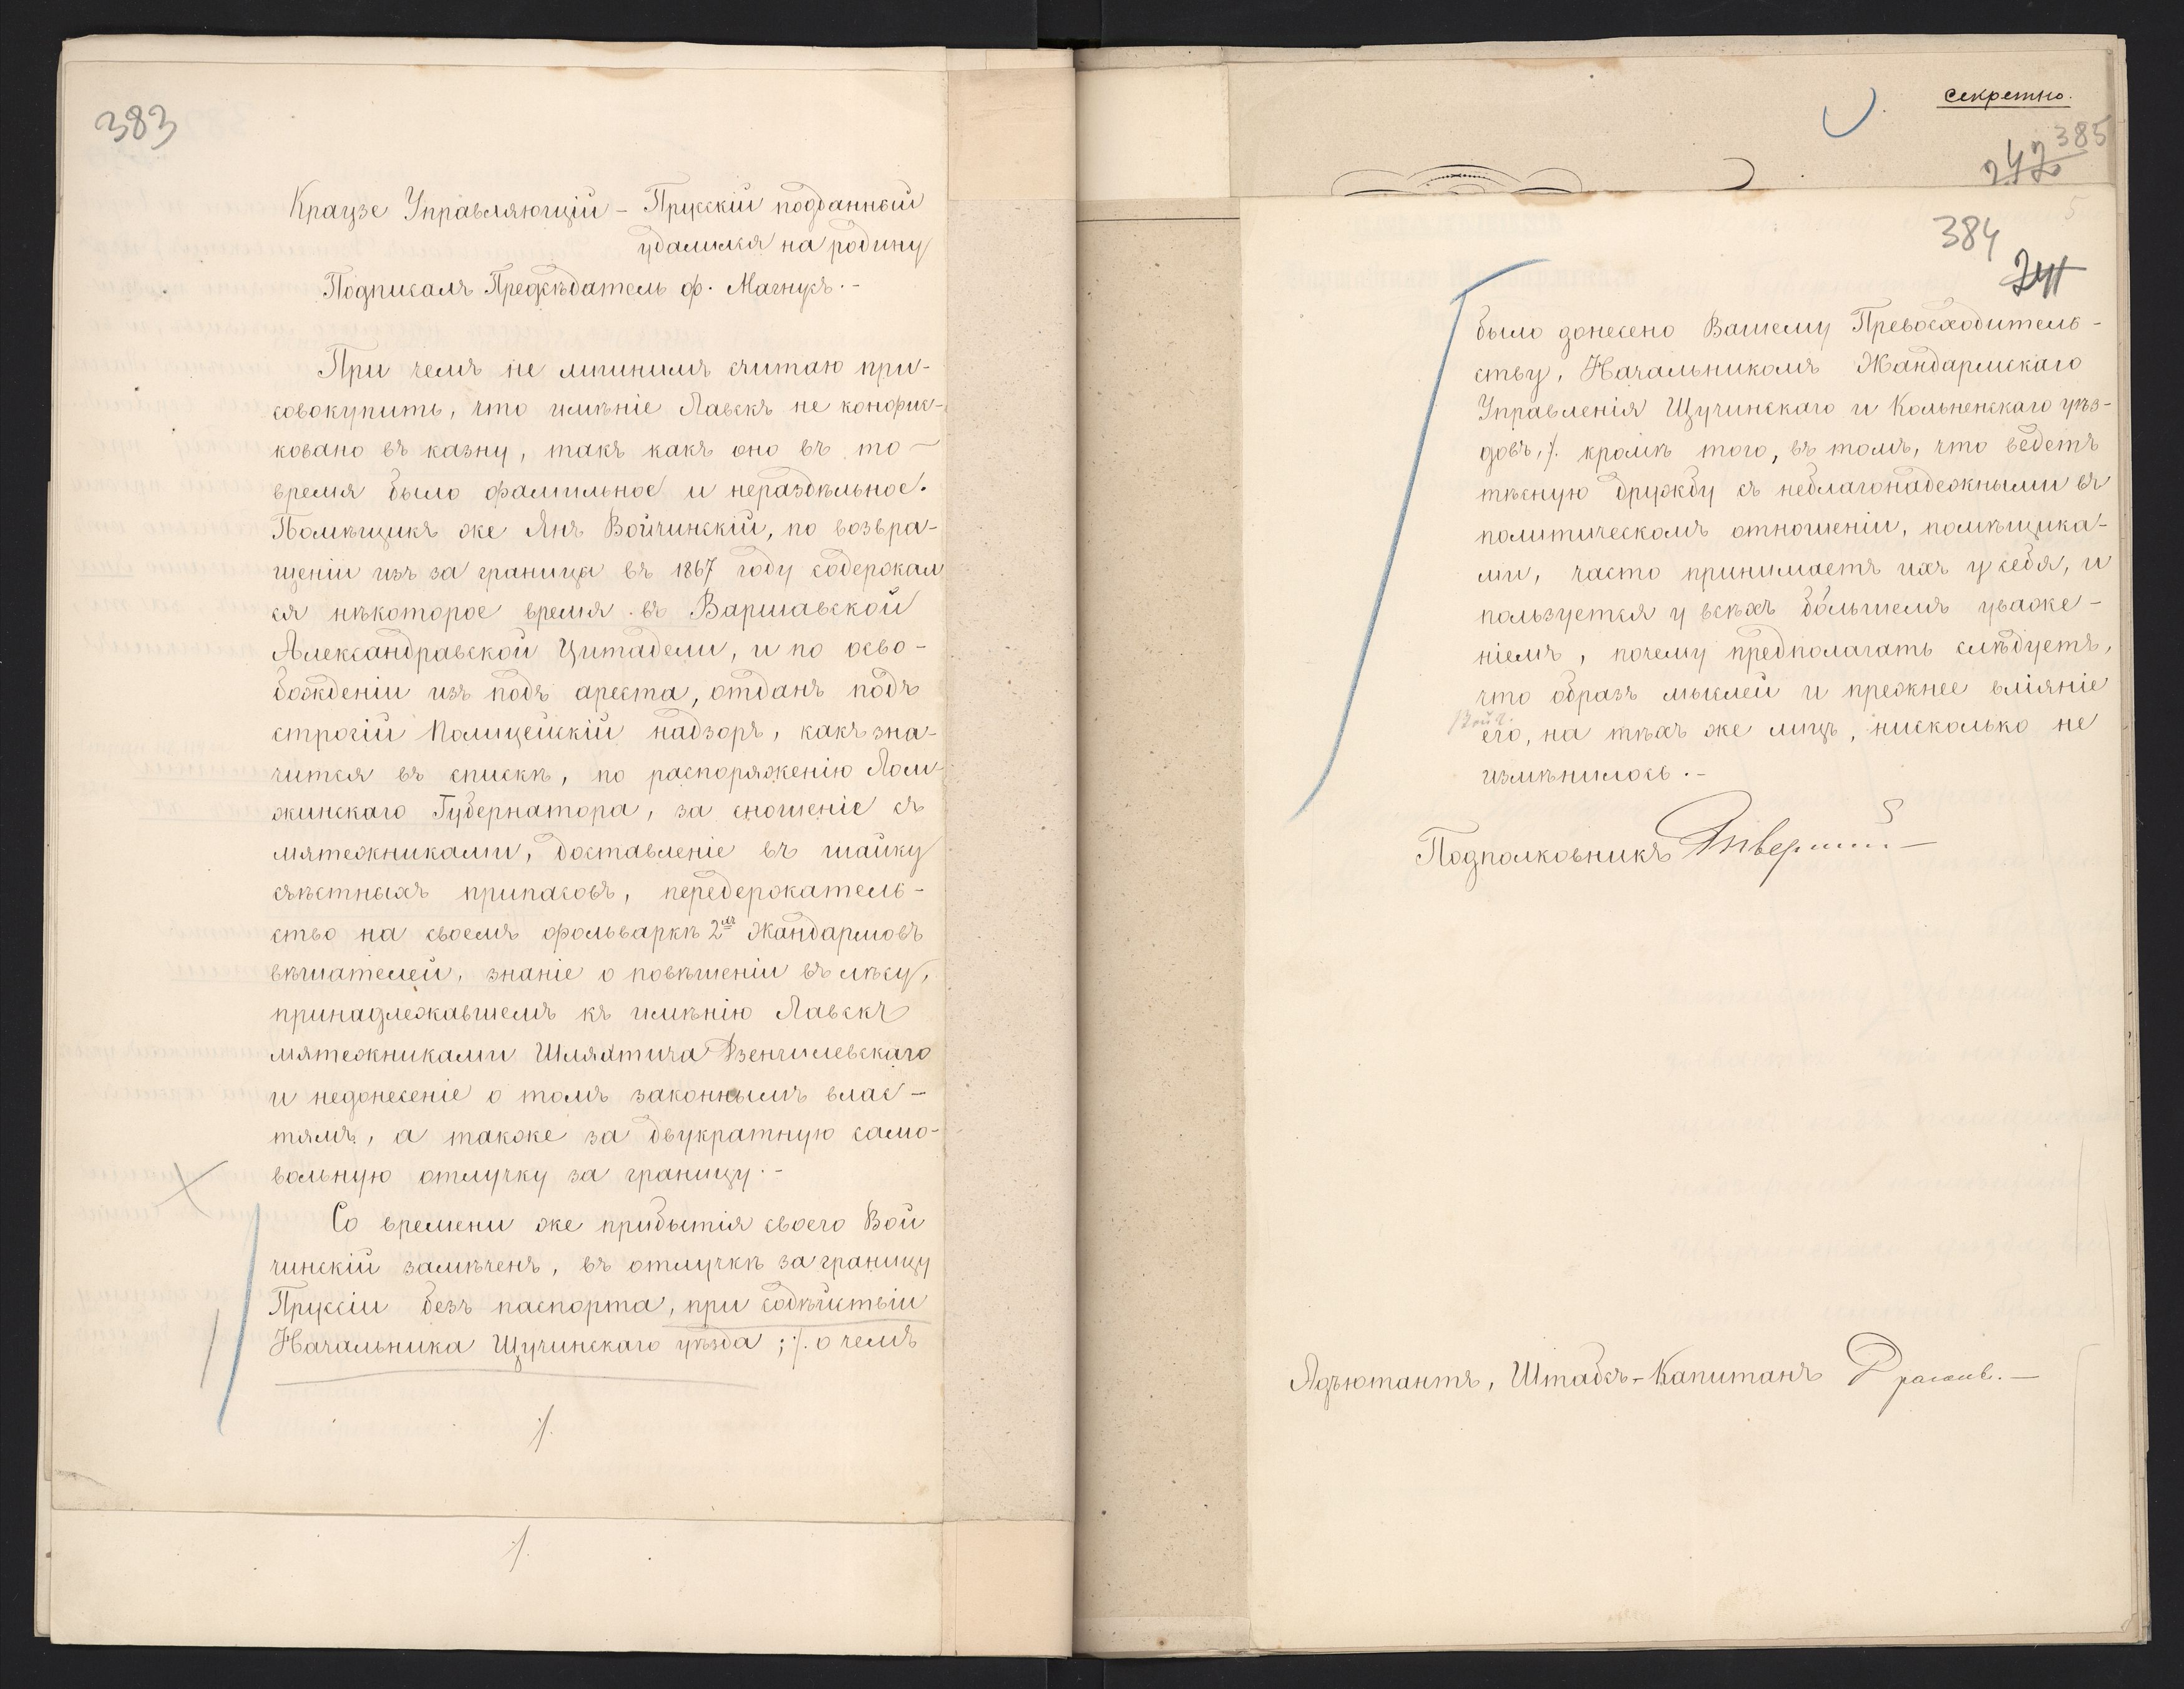 383
Краузе Управляющій - Прусскій подданный
удалился на родину
Подписалъ Предсѣдатель ф. Магнусъ. -
При чемъ не лишнимъ считаю при-
совокупить, что имѣніе Лавскъ не конфис-
ковано въ казну, такъ какъ оно въ то
время было фамильное и нераздѣльное.
Помѣщикъ же Янъ Войчинскій, по возвра-
щеніи изъ за граница въ 1867 году содержал
ся нѣкоторое время въ Варшавской
Александравской Цитадели, и по осво-
божденіи изъ подъ ареста, отданъ подъ
строгій Полицейскій надзоръ, какъ зна-
чится въ спискѣ, по распоряженію Лом-
жинскаго Губернатора, за сношеніе съ
мятежниками, доставленіе въ шайку
съѣстныхъ припасовъ, передержатель-
ство на своемъ фольваркѣ 2хъ Жандармовъ
вѣшателей, знаніе о повѣшеніи въ лѣсу,
принадлежавшемъ къ имѣнію Лавскъ
мятежниками Шляхтича Дзенгилевскаго
и недонесеніе о томъ законнымъ влас-
тямъ, а также за двукратную само-
вольную отлучку за границу. -
Со времени же прибытія своего Вой
чинскій замѣченъ, въ отлучкѣ за границу
Пруссіи безъ паспорта, при содѣйствіи
Начальника Щучинскаго уѣзда; ⁒ о чемъ
⁒
⁒
секретно.
385
242
384
241
было донесено Вашему Превосходитель-
ству, Начальникомъ Жандармскаго
Управленія Щучинскаго и Кольненскаго уѣз-
довъ, ⁒ кромѣ того, въ томъ, что ведетъ
тѣсную дружбу съ неблагонадежными въ
политическомъ отношеніи, помѣщика-
ми, часто принимаетъ ихъ у себя, и
пользуется у всѣхъ большимъ уваже-
ніемъ, почему предполагать слѣдуетъ,
что образъ мыслей и прежнее вліяніе
Войч.
его, на тѣхъ же лицъ, нисколько не
измѣнилось. -
Подполковникъ
Адъютантъ, Штабсъ-Капитанъ